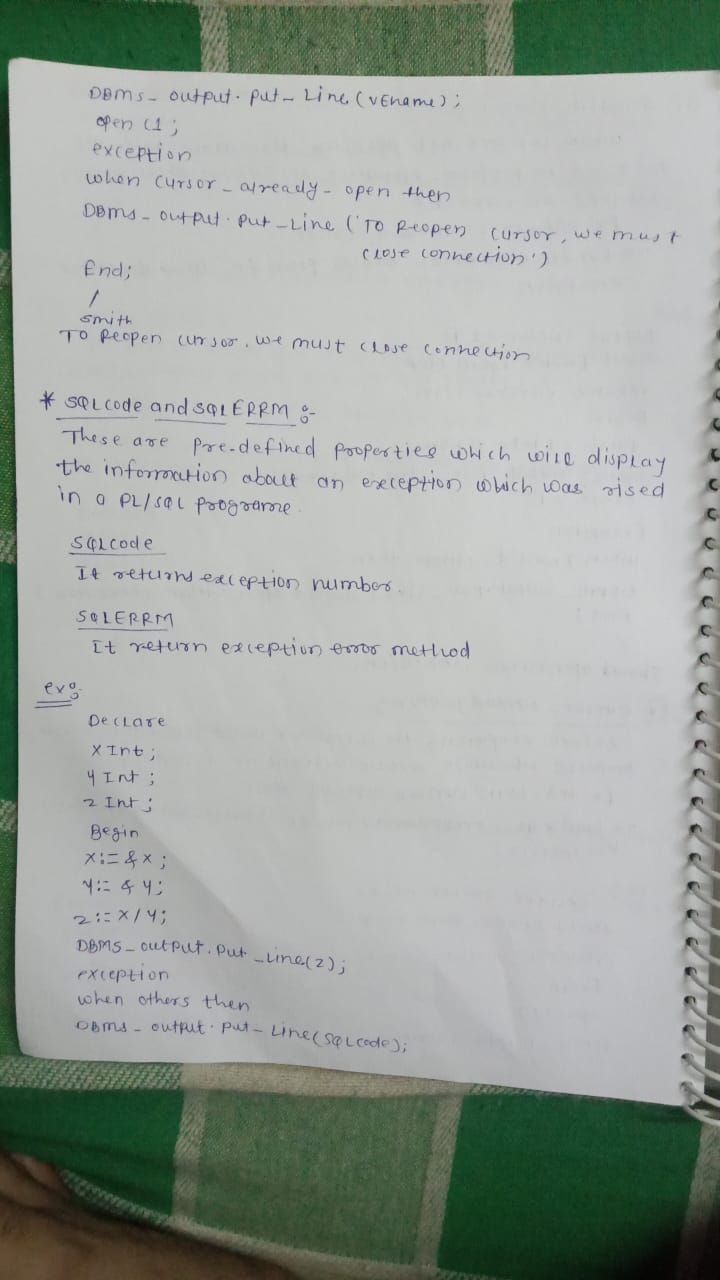 DBMS_output.put_Line(vEname);
open c1;
exception
when cursor_already_open then
DBMS_output.put_Line('To Reopen cursor, we must
close connection')
End;
/
smith
To Reopen cursor, we must close connection
* SQLcode and SQLERRM :-
These are pre-defined properties which will display
the information about an exception which was rised
in a PL/SQL programe.
SQLcode
It returns exception number.
SQLERRM
It return exception error method
ex:-
Declare
X Int;
Y Int;
Z Int;
Begin
X:=&X;
Y:=&Y;
Z:=X/Y;
DBMS_output.put_Line(z);
exception
when others then
DBMS_output.put_Line(SQLcode);